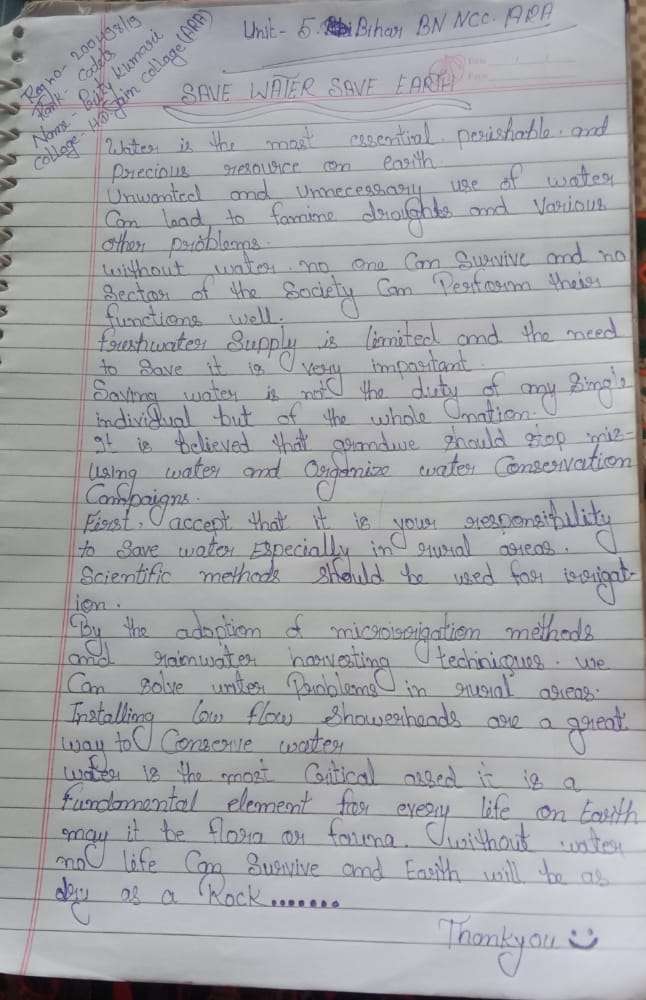 Unit - 5 Bihar BN NCC. ARA
Reg no - 20041319
Rank - Cadet
Name - Kumari
College - Jain College (ARA)
SAVE WATER SAVE EARTH
Water is the most essential, perishable and
Precious resource on earth.
Unwanted and unnecessary use of water
Can lead to famine droughts and Various
other problems.
without water no one Can Survive and no
Sector of the Society Can Perform their
functions well.
freshwater Supply is limited and the need
to Save it is very important.
Saving water is not the duty of any Single
individual but of the whole nation.
It is believed that should stop mis-
using water and Organize water Conservation
Campaigns.
First, accept that it is your responsibility
to Save water Especially in rural areas.
Scientific methods should be used for irrigat-
ion.
By the adoption of microirrigation methods
and rainwater harvesting techniques. we
Can solve water Problems in rural areas.
Installing low flow Showerheads are a great
way to Conserve water
water is the most Critical assed it is a
fundamental element for every life on Earth
may it be flora or fauna. without water
no life Can Survive and Earth will be as
dry as a Rock.......
Thankyou